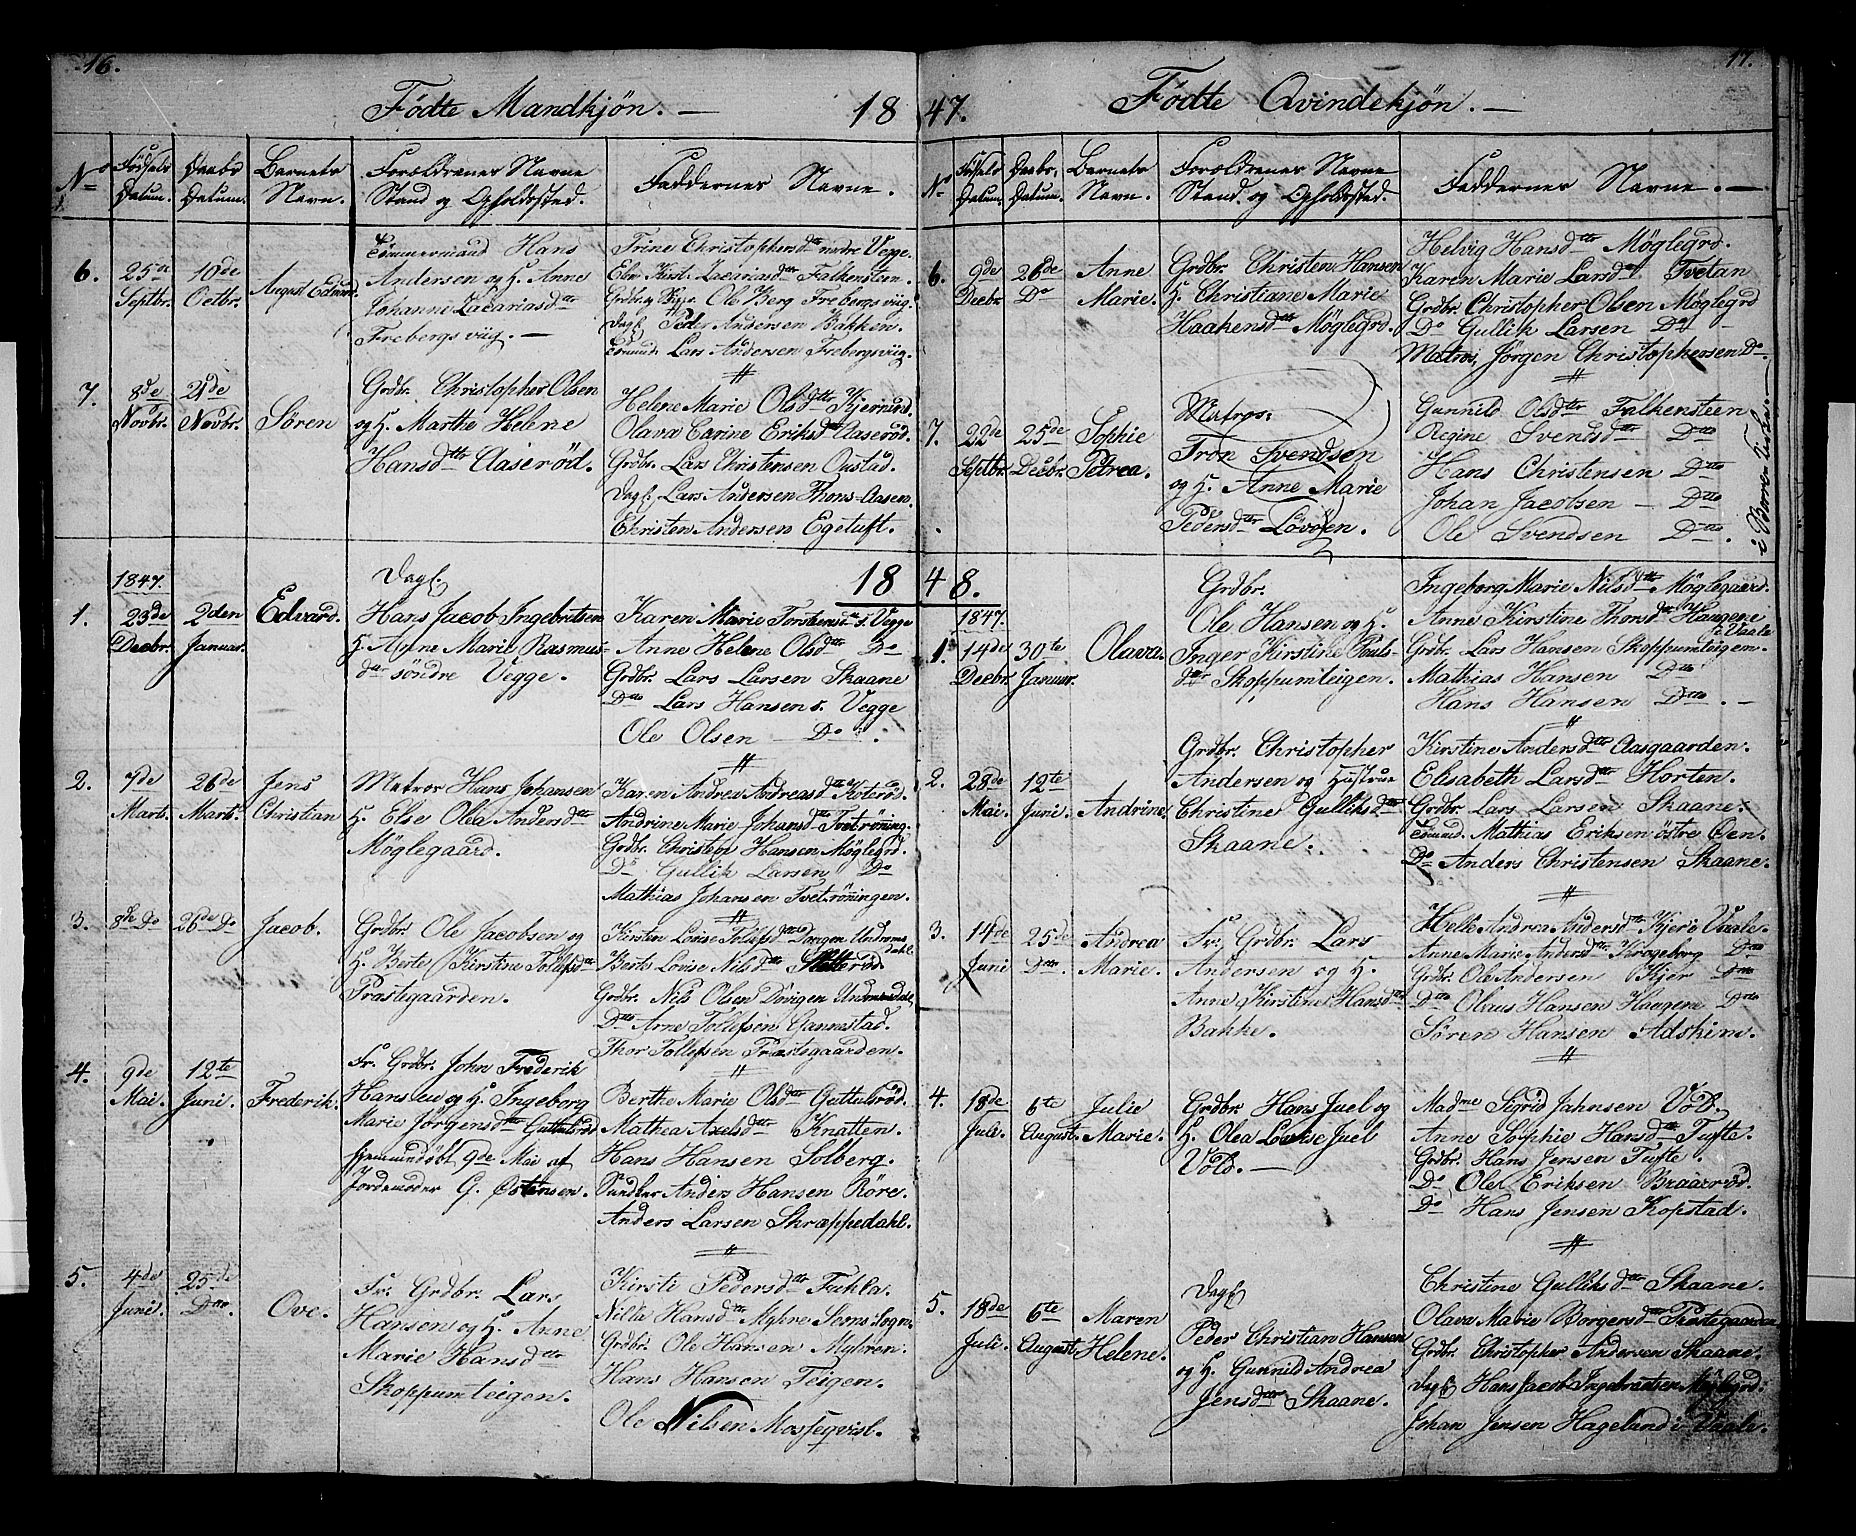 16.
Fødte Mandkjøn. — 18
No
Fødsels Datum.
Daabs Datum.
Barnets Navn.
Forældrenes Navne Stand og Opholdssted.
Faddernes Navne.
6. 25de Septbr. 10de Octbr. August Edvard
Tømmermand Hans
Andersen og H. Anne
Johanne Zacariasdtr
Frebergsviig. —
Trine Christophersdtr nedre Vegge.
Else Kirst. Zacariasdtr Falkensteen.
Ole Berg Frebergsviig.
Dagl. Peder Andersen Bakken.
Tømmd. Lars Andersen Frebergsviig.
7. 8de Novbr. 21de Novbr. Søren
Grdbr. Christopher Olsen
og H. Marthe Helene
Hansdtr Aaserød.
Helene Marie Olsdtr Kjernaas.
Olava Carine Eriksdtr Aaserød.
Grdbr. Lars Christensen Oustad.
Dagl. Lars Andersen Thons-Aasen
Christen Andersen Egetuft.
18
1847.
1. 23de Decbr. 2den Januar. Edvard.
Dagl.
Hans Jacob Ingebretsen
H. Anne Marie Rasmus-
dtr søndre Vegge.
Karen Marie Torstensdtr s. Vegge
Anne Helene Olsdtr Do
Grdbr. Lars Larsen Skaane
Dtto Lars Hansen s. Vegge
Ole Olsen — Do.
2. 7de Marts. 26de Marts. Jens Christian
Matros Hans Johansen
H. Else Olea Andersdtr
Møglegaard.
Karen Andrea Andreasdtr Koterød.
Andrine Marie Johansdtr Tvetrøning.
Grdbr. Christen Hansen Møglegrd.
Do Gullik Larsen Do
Mathias Johansen Tvetrøningen.
3. 8de Do 26de Do Jacob.
Grdbr. Ole Jacobsen og
H. Berte Kirstine Tollefsdtr
Præstegaarden.
Kirsten Lovise Tollefsdtr Dorgen Undrums
dahl.
Berte Lovise Nilsdtr
Grdbr. Nils Olsen Dorigen Undrumsdal.
Dtto Arne Tollefsen Gannestad.
Thor Tollefsen Præstegaarden.
4. 9de Mai. 12te Juni. Frederik.
Fr. Grdbr. John Frederik
og H. Ingeborg
Marie Jørgensdtr Guttubrød
hjemmedøbt 9de Mai af
Jordemoder G. Østensen.
Berthe Marie Olsdtr Guttubrød.
Mathea Axelsdtr Knatten.
Hans Hansen Solberg.
Anders Hansen Røre.
Anders Larsen Skrappedahl.
5. 4de Juni. 25de Dtto. Ove.
Fr. Grdbr. Lars
Hansen og H. Anne
Marie Hansdtr
Skoppumteigen.
Kirsti Pedersdtr Fuhla.
Nilla Hansdtr Myhre Sems Sogn.
Grdbr. Ole Hansen Myhren.
Hans Hansen Teigen.
Ole Nilsen Mosseqvist.
17.
47. Fødte Qvindekjøn. —
No
Fødsels Datum.
Daabs Datum.
Barnets Navn.
Forældrenes Navne Stand og Opholdssted.
Faddernes Navne. —
6. 9de Decbr. 26de Do Anne Marie.
Grdbr. Christen Hansen
H. Christiane Marie
Haakensdtr Møglegrd.
Helvig Hansdtr Møglegrd.
Karen Marie Larsdtr Tvetan
Grdbr. Christopher Olsen Møglegrd
Do Gullik Larsen Do
Matros Jörgen Christophersen Do
7. 22de Septbr. 25de Decbr. Sophie Petrea.
Matros.
Tron Svendsen
og H. Anne Marie
Pedersdtr Løvøen.
Gunnild Olsdtr Falkensteen
Regine Svendsdtr Dtto
Hans Christensen Dtto
Johan Jacobsen — Dtto
Ole Svendsen Dtto.
i Borre Kirke.
48.
1847.
1. 14de Decbr. 30te Januar. Olava.
Grdbr.
Ole Hansen og H.
Inger Kirstine Pouls-
dtr Skoppumteigen.
Ingeborg Marie Nilsdtr Møglegaard.
Anne Kirstine Thonsdtr Haugene
i Vaale
Grdbr. Lars Hansen Skoppumteigen.
Mathias Hansen Dtto
Hans Hansen Dtto. —
2. 28de Mai. 12te Juni. Andrine.
Grdbr. Christopher
Andersen og Hustrue
Christine Gulliksdtr
Skaane.
Kirstine Andersdtr Aasgaarden.
Elisabeth Larsdtr Horten.
Grdbr. Lars Larsen Skaane.
Tømmd. Mathias Eriksen østre Oen.
Do Anders Christensen Skaane.
3. 14de Juni 25de Dtto. Andrea Marie.
Fr. Grdbr. Lars
Andersen og H.
Anne Kirstine Hansdtr
Bakke.
Helle Andrea Andersdtr Kjær i Vaale.
Anne Marie Andersdtr Krogeborg Do
Grdbr. Ole Andersen Kjær Dtto
Dtto Olaus Hansen Haugene Dtto
Søren Hansen Adskim.
4. 18de Juli. 6te August. Julie Marie.
Grdbr. Hans Juel og
H. Olea Lovise Juel
Vold. —
Madme Sigrid Jahnsen Vold.
Anne Sophie Hansdtr Tufte.
Grdbr. Hans Jensen Tufte.
Do Ole Eriksen Braarød.
Do Hans Jensen Kopstad.
5. 18de Juli. 6te August. Maren Helene.
Dagl.
Peder Christian Hansen
og H. Gunnild Andrea
Jensdtr Skaane.
Christine Gulliksdtr Skaane.
Olava Marie Borgersdtr Præstegaarden
Grdbr. Christopher Andersen Skaane.
Dagl. Hans Jacob Ingebretsen Møglegrd.
Johan Jensen Hageland i Vaale.